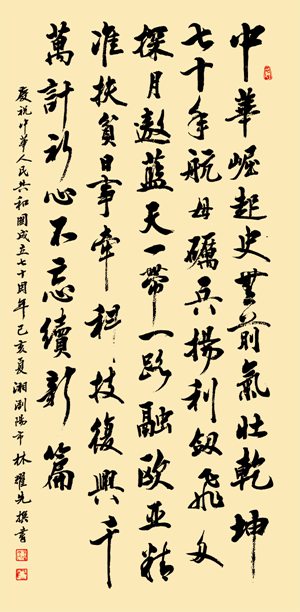 中華崛起史無前氣壯乾坤
七十年航母礪兵揚利劍飛舟
探月遨藍天一帶一路融歐亞精
准扶貧日事牽科技復興千
萬計初心不忘續新篇
慶祝中華人民共和國成立七十周年己亥夏湘瀏陽市林耀先撰書